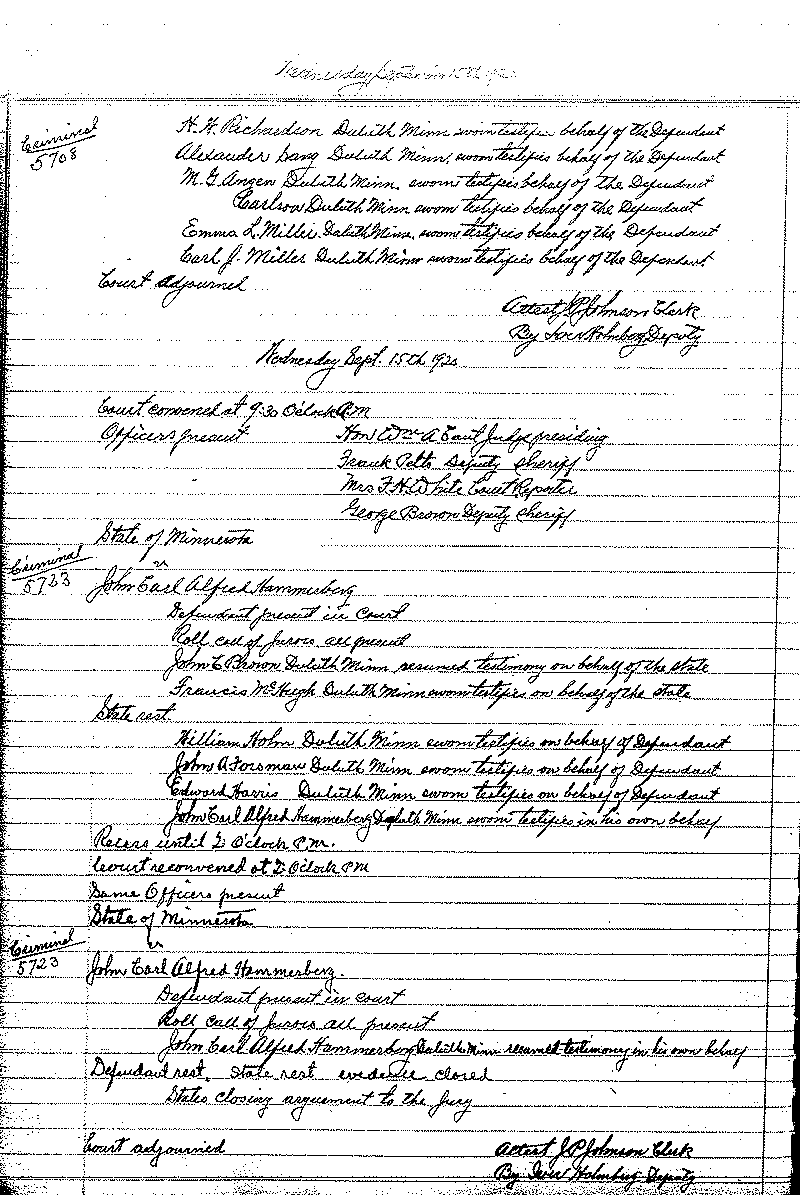 Wednesday
Criminal
5708
H. H. Richardson Duluth Minn sworn testifies behalf of the Defendant
Alexander Lang Duluth Minn, sworn testifies behalf of the Defendant
M. G. Angen Duluth Minn. sworn testifies behalf of the Defendant
Carlson Duluth Minn sworn testifies behalf of the Defendant
Emma L. Miller Duluth Minn. sworn testifies behalf of the Defendant
Carl J. Miller Duluth Minn sworn testifies behalf of the Defendant
Court adjourned
Attest J.P. Johnson Clerk
By Iver Holmberg Deputy
Wednesday Sept. 15th 1920
Court convened at 9:30 O'clock A.M
Officers present Hon Wm A Cant Judge presiding
Frank Deputy Sheriff
Mrs F.H. White Court Reporter
George Brown Deputy Sheriff
State of Minnesota
Criminal
5723
vs
John Earl Alfred Hammerberg
Defendant present in Court
Roll call of Jurors all present
John E Brown Duluth Minn resumed testimony on behalf of the state
Francis McHugh Duluth Minn sworn testifies on behalf of the state
State rest
William Holm Duluth Minn sworn testifies on behalf of Defendant
John A Forsman Duluth Minn sworn testifies on behalf of Defendant
Edward Harris Duluth Minn sworn testifies on behalf of Defendant
John Earl Alfred Hammerberg Duluth Minn sworn testifies in his own behalf
Recess until 2 O'clock P.M.
Court reconvened at 2 O'clock PM
Same Officers present
State of Minnesota
Criminal
5723
vs
John Earl Alfred Hammerberg.
Defendant present in court
Roll call of Jurors all present
John Earl Alfred Hammerberg Duluth Minn resumed testimony in his own behalf
Defendant rest. State rest evidence closed
States closing arguement to the Jury
Court adjourned
Attest J.P. Johnson Clerk
By Iver Holmberg Deputy